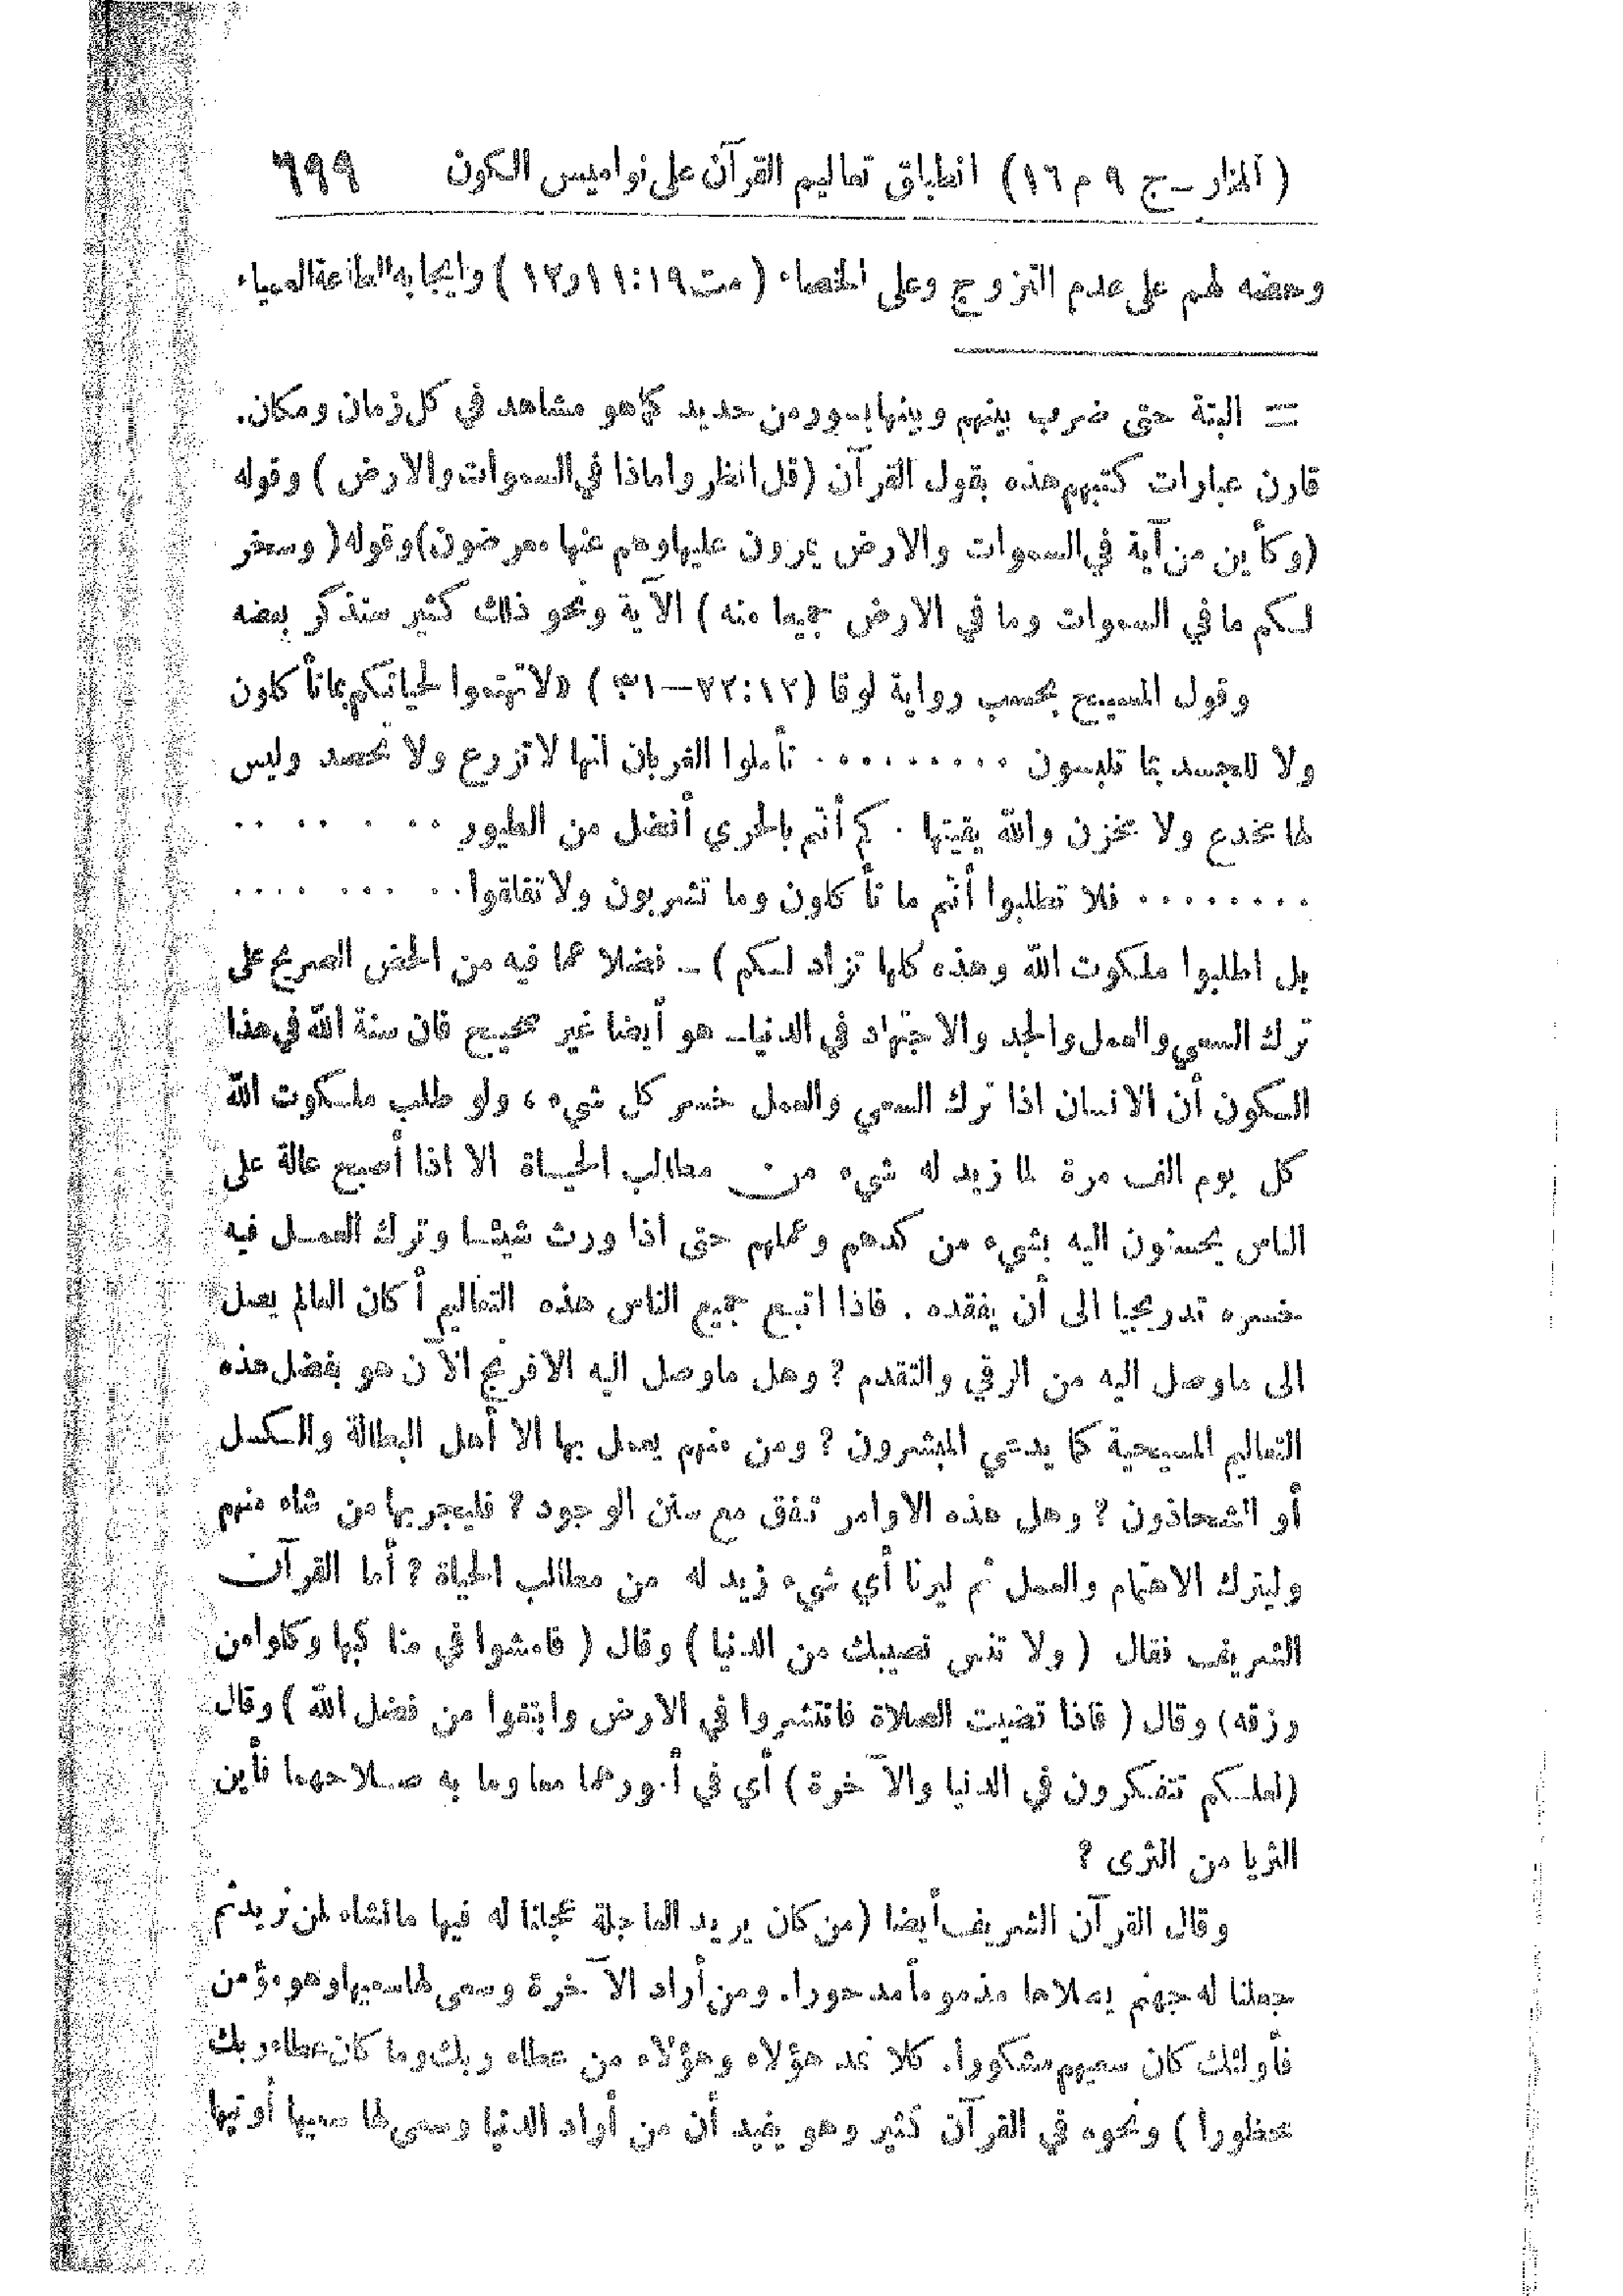 ( المنار ـ ج ٩ م ١٦ ) انطباق تعاليم القرآن على نواميس الكون ٦٩٩
وحضه لهم على عدم التزوج وعلى الخصاء ( مت ١٩:١١و١٢ ) وايجابه الطاعة العمياء
= البتة حتى ضرب بينهم وبينها بسور من حديد كما هو مشاهد في كل زمان ومكان.
قارن عبارات كتبهم هذه بقول القرآن (قل انظروا ماذا في السموات والارض ) وقوله
(وكأين من آية في السموات والارض يمرون عليها وهم عنها معرضون) وقوله ( وسخر
لكم ما في السموات وما في الارض جميعا منه ) الآية ونحو ذلك كثير سنذكر بعضه
وقول المسيح بحسب رواية لوقا (١٢:٢٢—٣١ ) «لا تهتموا لحياتكم بما تأكلون
ولا للجسد بما تلبسون ٠٠٠٠٠٠٠٠٠ تأملوا الغربان انها لا تزرع ولا تحصد وليس
لها مخدع ولا مخزن والله يقيتها . كم أنتم بالحري أفضل من الطيور ٠٠ ٠ ٠٠ ٠٠
٠٠٠٠٠٠٠٠ فلا تطلبوا أنتم ما تأكلون وما تشربون ولا تقلقوا ٠٠ ٠٠٠ ٠٠٠٠
بل اطلبوا ملكوت الله وهذه كلها تزاد لكم ) ـ فضلا عما فيه من الحض الصريح على
ترك السعي والعمل والجد والاجتهاد في الدنيا ـ هو أيضا غير صحيح فان سنة الله في هذا
الكون أن الانسان اذا ترك السعي والعمل خسر كل شيء ، ولو طلب ملكوت الله
كل يوم الف مرة لما زيد له شيء من مطالب الحياة الا اذا أصبح عالة على
الناس يحسنون اليه بشيء من كدهم وعملهم حتى اذا ورث شيئا وترك العمل فيه
خسره تدريجيا الى أن يفقده . فاذا اتبع جميع الناس هذه التعاليم أكان العالم يصل
الى ما وصل اليه من الرقي والتقدم ? وهل ما وصل اليه الافرنج الآن هو بفضل هذه
التعاليم المسيحية كما يدعي المبشرون ? ومن منهم يعمل بها الا أهل البطالة والكسل
أو الشحاذون ? وهل هذه الاوامر تتفق مع سنن الوجود ? فليجربها من شاء منهم
وليترك الاهتمام والعمل ثم ليرنا أي شيء زيد له من مطالب الحياة ? أما القرآن
الشريف فقال ( ولا تنس نصيبك من الدنيا ) وقال ( فامشوا في مناكبها وكلوا من
رزقه) وقال ( فاذا قضيت الصلاة فانتشروا في الارض وابتغوا من فضل الله ) وقال
(لعلكم تتفكرون في الدنيا والآخرة ) أي في أمورهما معا وما به صلاحهما فأين
الثريا من الثرى ?
وقال القرآن الشريف أيضا (من كان يريد العاجلة عجلنا له فيها ما نشاء لمن نريد ثم
جعلنا له جهنم يصلاها مذموما مدحورا. ومن أراد الآخرة وسعى لها سعيها وهو مؤمن
فأولئك كان سعيهم مشكورا. كلا نمد هؤلاء وهؤلاء من عطاء ربك وما كان عطاء ربك
محظورا ) ونحوه في القرآن كثير وهو يفيد أن من أراد الدنيا وسعى لها سعيها أوتيها